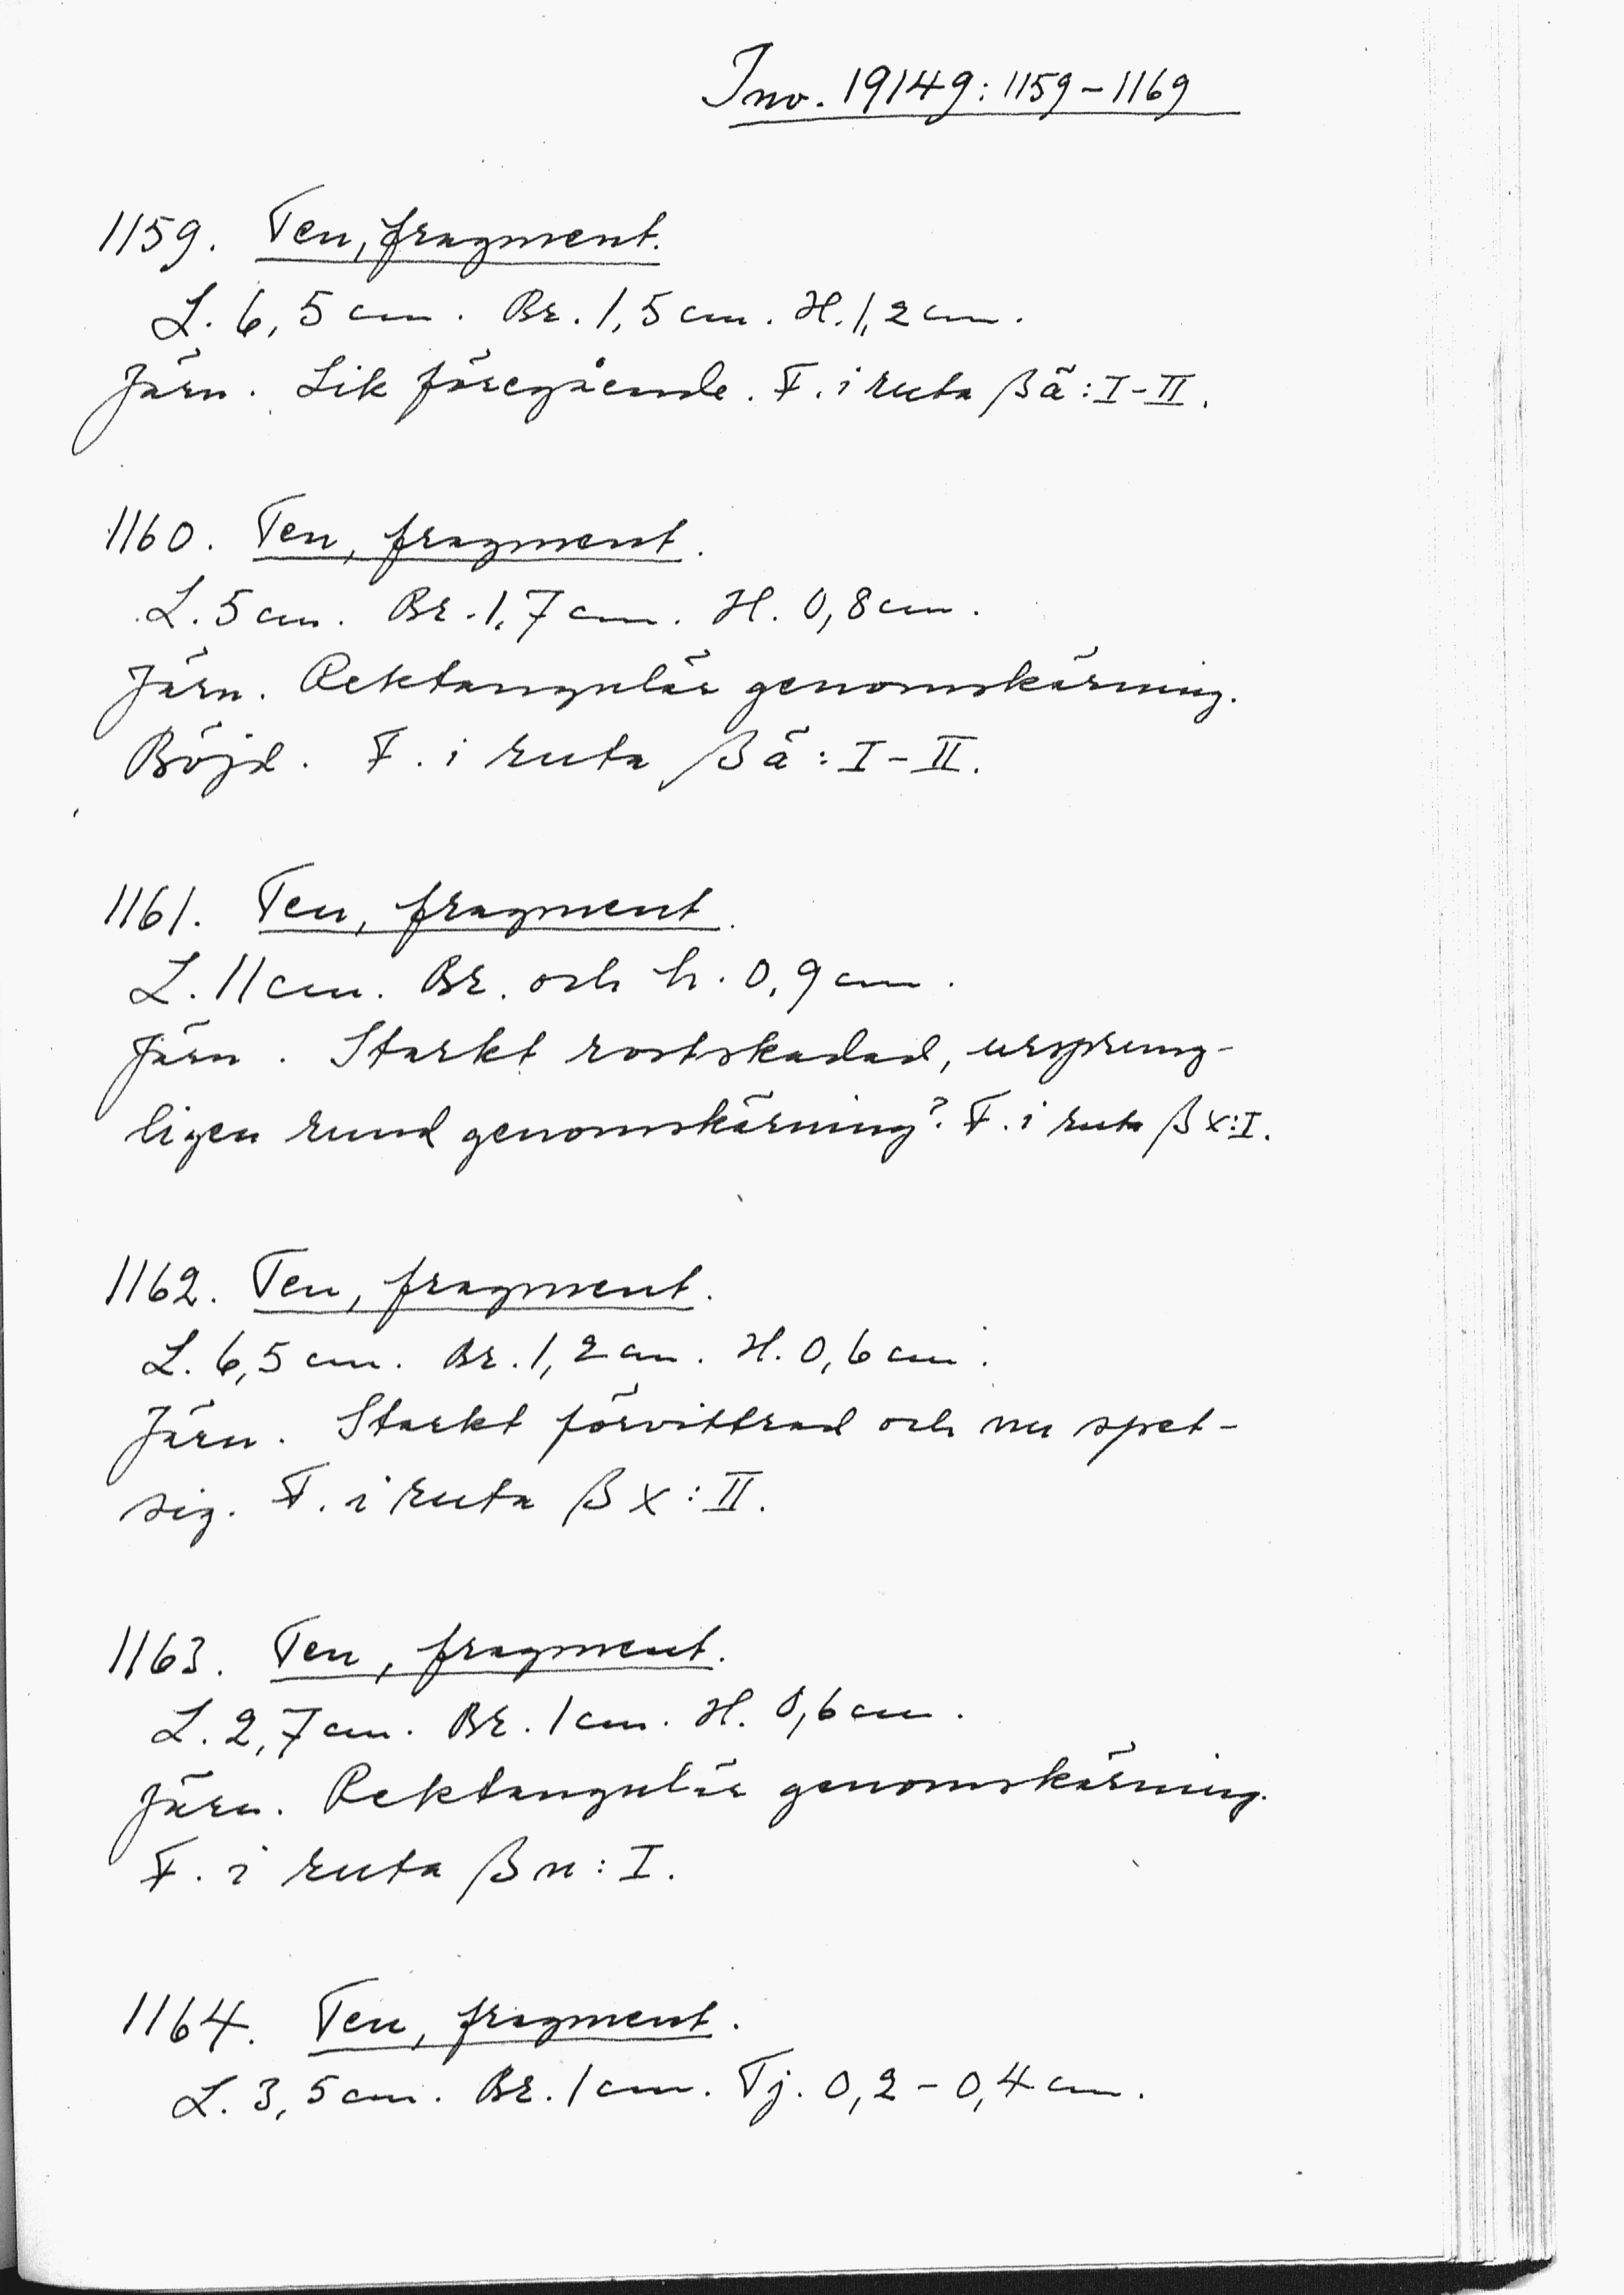 Inv. 19149:1159-1169
1159. Ten, fragment.
L. 6,5 cm. Br. 1,5 cm. H. 1,2 cm.
Järn. Lik föregående. F. i ruta βä:I-II.
1160. Ten, fragment.
L. 5 cm. Br. 1,7 cm. H. 0,8 cm.
Järn. Rektangulär genomskärning.
Böjd. F. i ruta βä:I-II.
1161. Ten, fragment.
L. 11 cm. Br. och h. 0,9 cm.
Järn. Starkt rostskadad, ursprung-
ligen rund genomskärning? F. i ruta βx:I.
1162. Ten, fragment.
L. 6,5 cm. Br. 1,2 cm. H. 0,6 cm.
Järn. Starkt förvittrad och nu spet-
sig. F. i ruta βx:II.
1163. Ten, fragment.
L. 2,7 cm. Br. 1 cm. H. 0,6 cm.
Järn. Rektangulär genomskärning.
F. i ruta βn:I.
1164. Ten, fragment.
L. 3,5 cm. Br. 1 cm. Tj. 0,2-0,4 cm.